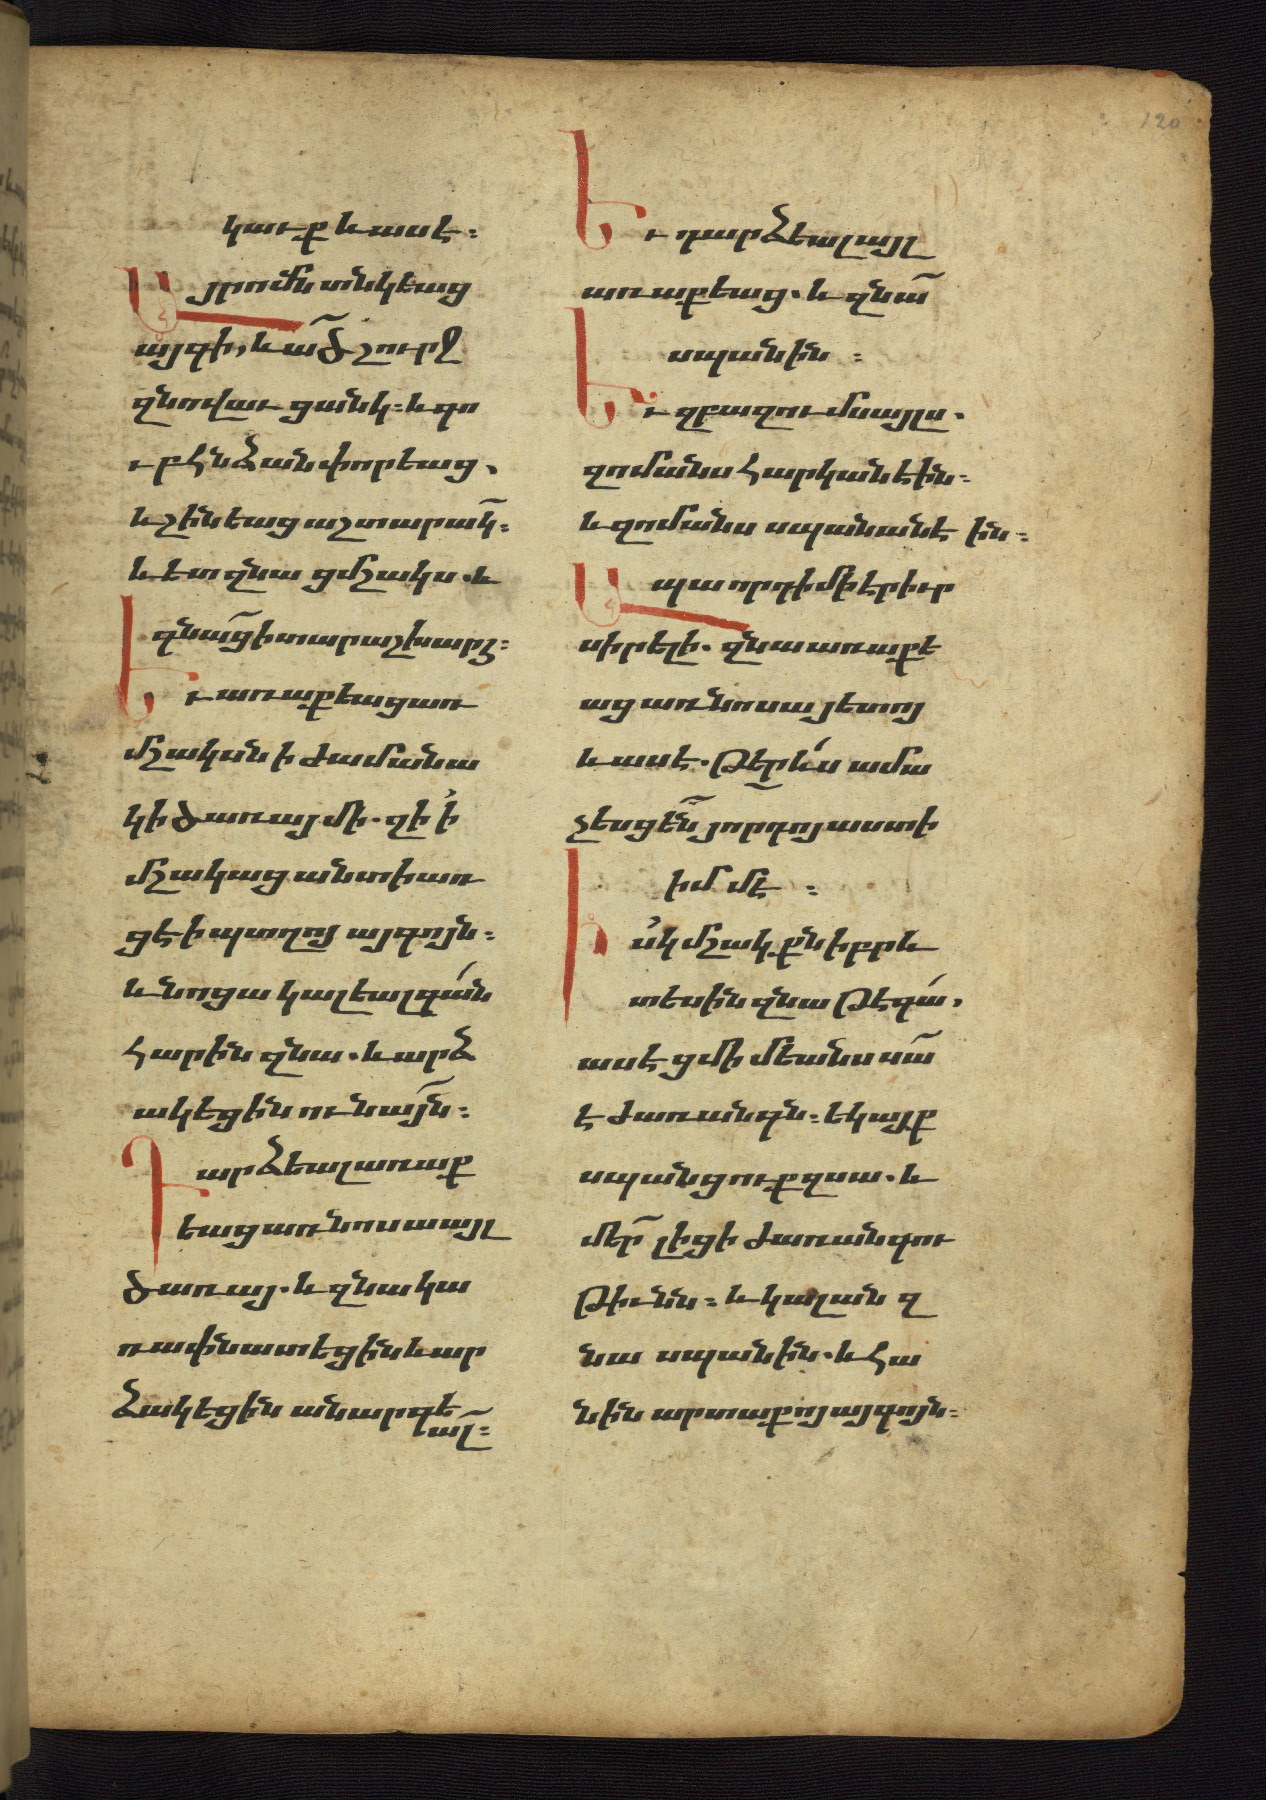 120
կաւք և ասէ ։
Այր ոմն տնկեաց
այգի, և ած շուրջ
զնովաւ ցանկ ։ և գո
ւբ հնձան փորեաց .
և շինեաց աշտարակ ։
և ետ զնա ցմշակս . և
գնաց ի տար աշխարհ ։
Եւ առաքեաց առ
մշակսն ի ժամանա
կի ծառայ մի . զի ի
մշակաց անտի առ
ցէ ի պտղոյ այգոյն ։
և նոցա կալեալ գան
հարին զնա . և արձ
ակեցին ունայն ։
Դարձեալ առաք
եաց առ նոսա այլ
ծառայ . և զնա կա
ռափնատեցին և ար
ձակեցին անարգե
ալ ։
Եւ դարձեալ այլ
առաքեաց . և զնա
սպանին ։
Եւ զբազումս այլս .
զոմանս հարկանէին ։
և զոմանս սպանանէ ին ։
Ապա որդի մի էր իւր
սիրելի . զնա առաքե
աց առ նոսա յետոյ
և ասէ . Թերևս ամա
չեսցեն յորդոյ աստի
իմ մէ ։
Իսկ մշակքն իբրև
տեսին զնա թէ գա .
ասեն ցմիմեանս սա
է ժառանգն ։ եկայք
սպանցուք զսա . և
մեր լիցի ժառանգու
թիւնն ։ և կալան զ
նա սպանին . և հա
նին արտաքոյ այգոյն ։